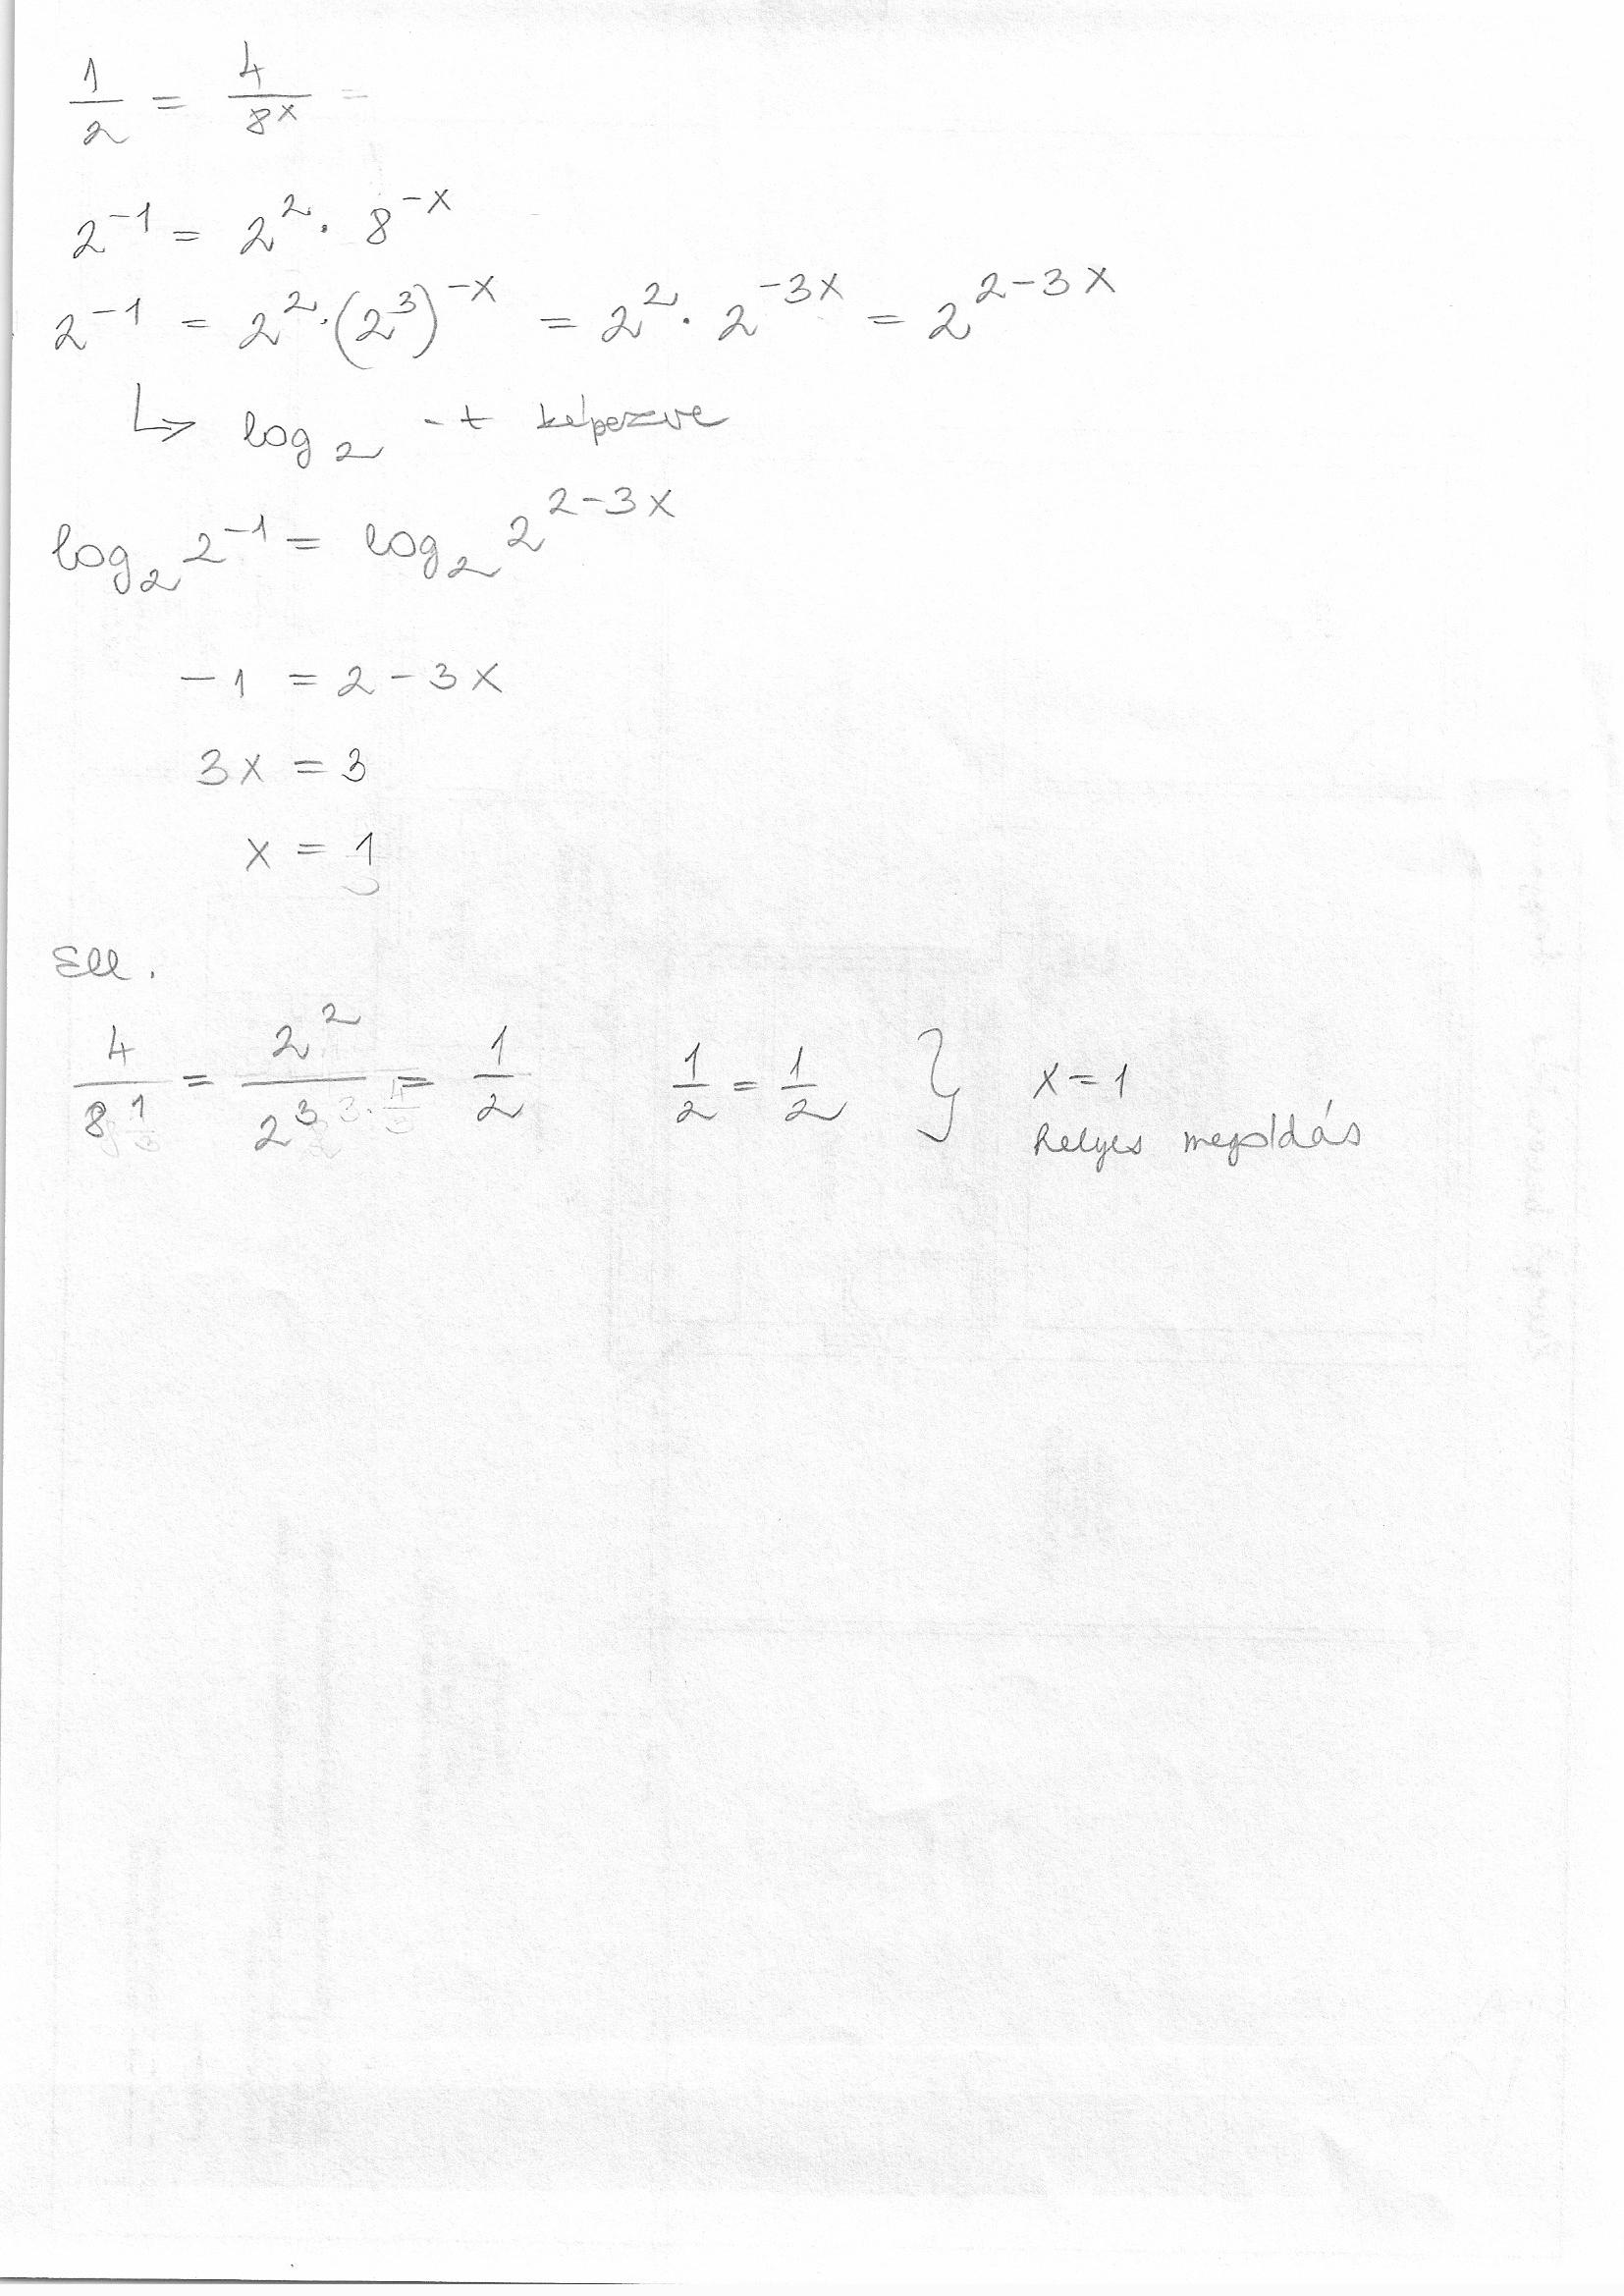 1/2 = 4/8^x =
2^-1 = 2^2 · 8^-x
2^-1 = 2^2 · (2^3)^-x = 2^2 · 2^-3x = 2^2-3x
↳ log_2 -t képezve
log_2 2^-1 = log_2 2^2-3x
-1 = 2 - 3x
3x = 3
x = 1
Ell.
4/8^1 = 2^2/2^3 = 1/2 1/2 = 1/2 } x = 1
helyes megoldás